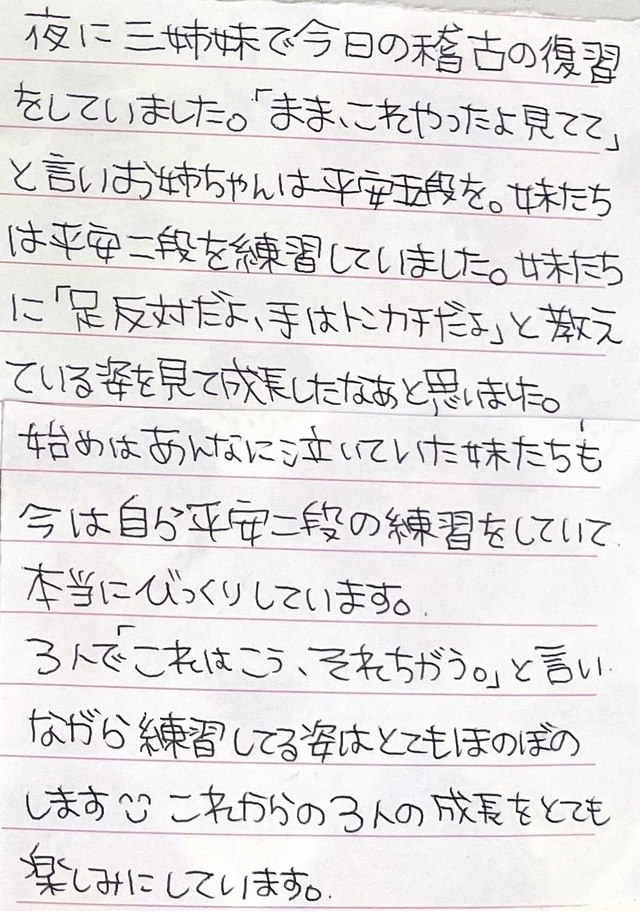 夜に三姉妹で今日の稽古の復習
をしていました。「まま、これやったよ見てて」
と言いお姉ちゃんは平安五段を。妹たち
は平安二段を練習していました。妹たち
に「足反対だよ、手はトンカチだよ」と教え
ている姿を見て成長したなあと思いました。
始めはあんなに泣いていた妹たちも
今は自ら平安二段の練習をしていて
本当にびっくりしています。
3人で「これはこう、それちがう。」と言い
ながら練習してる姿はとてもほのぼの
します☺ これからの3人の成長をとても
楽しみにしています。